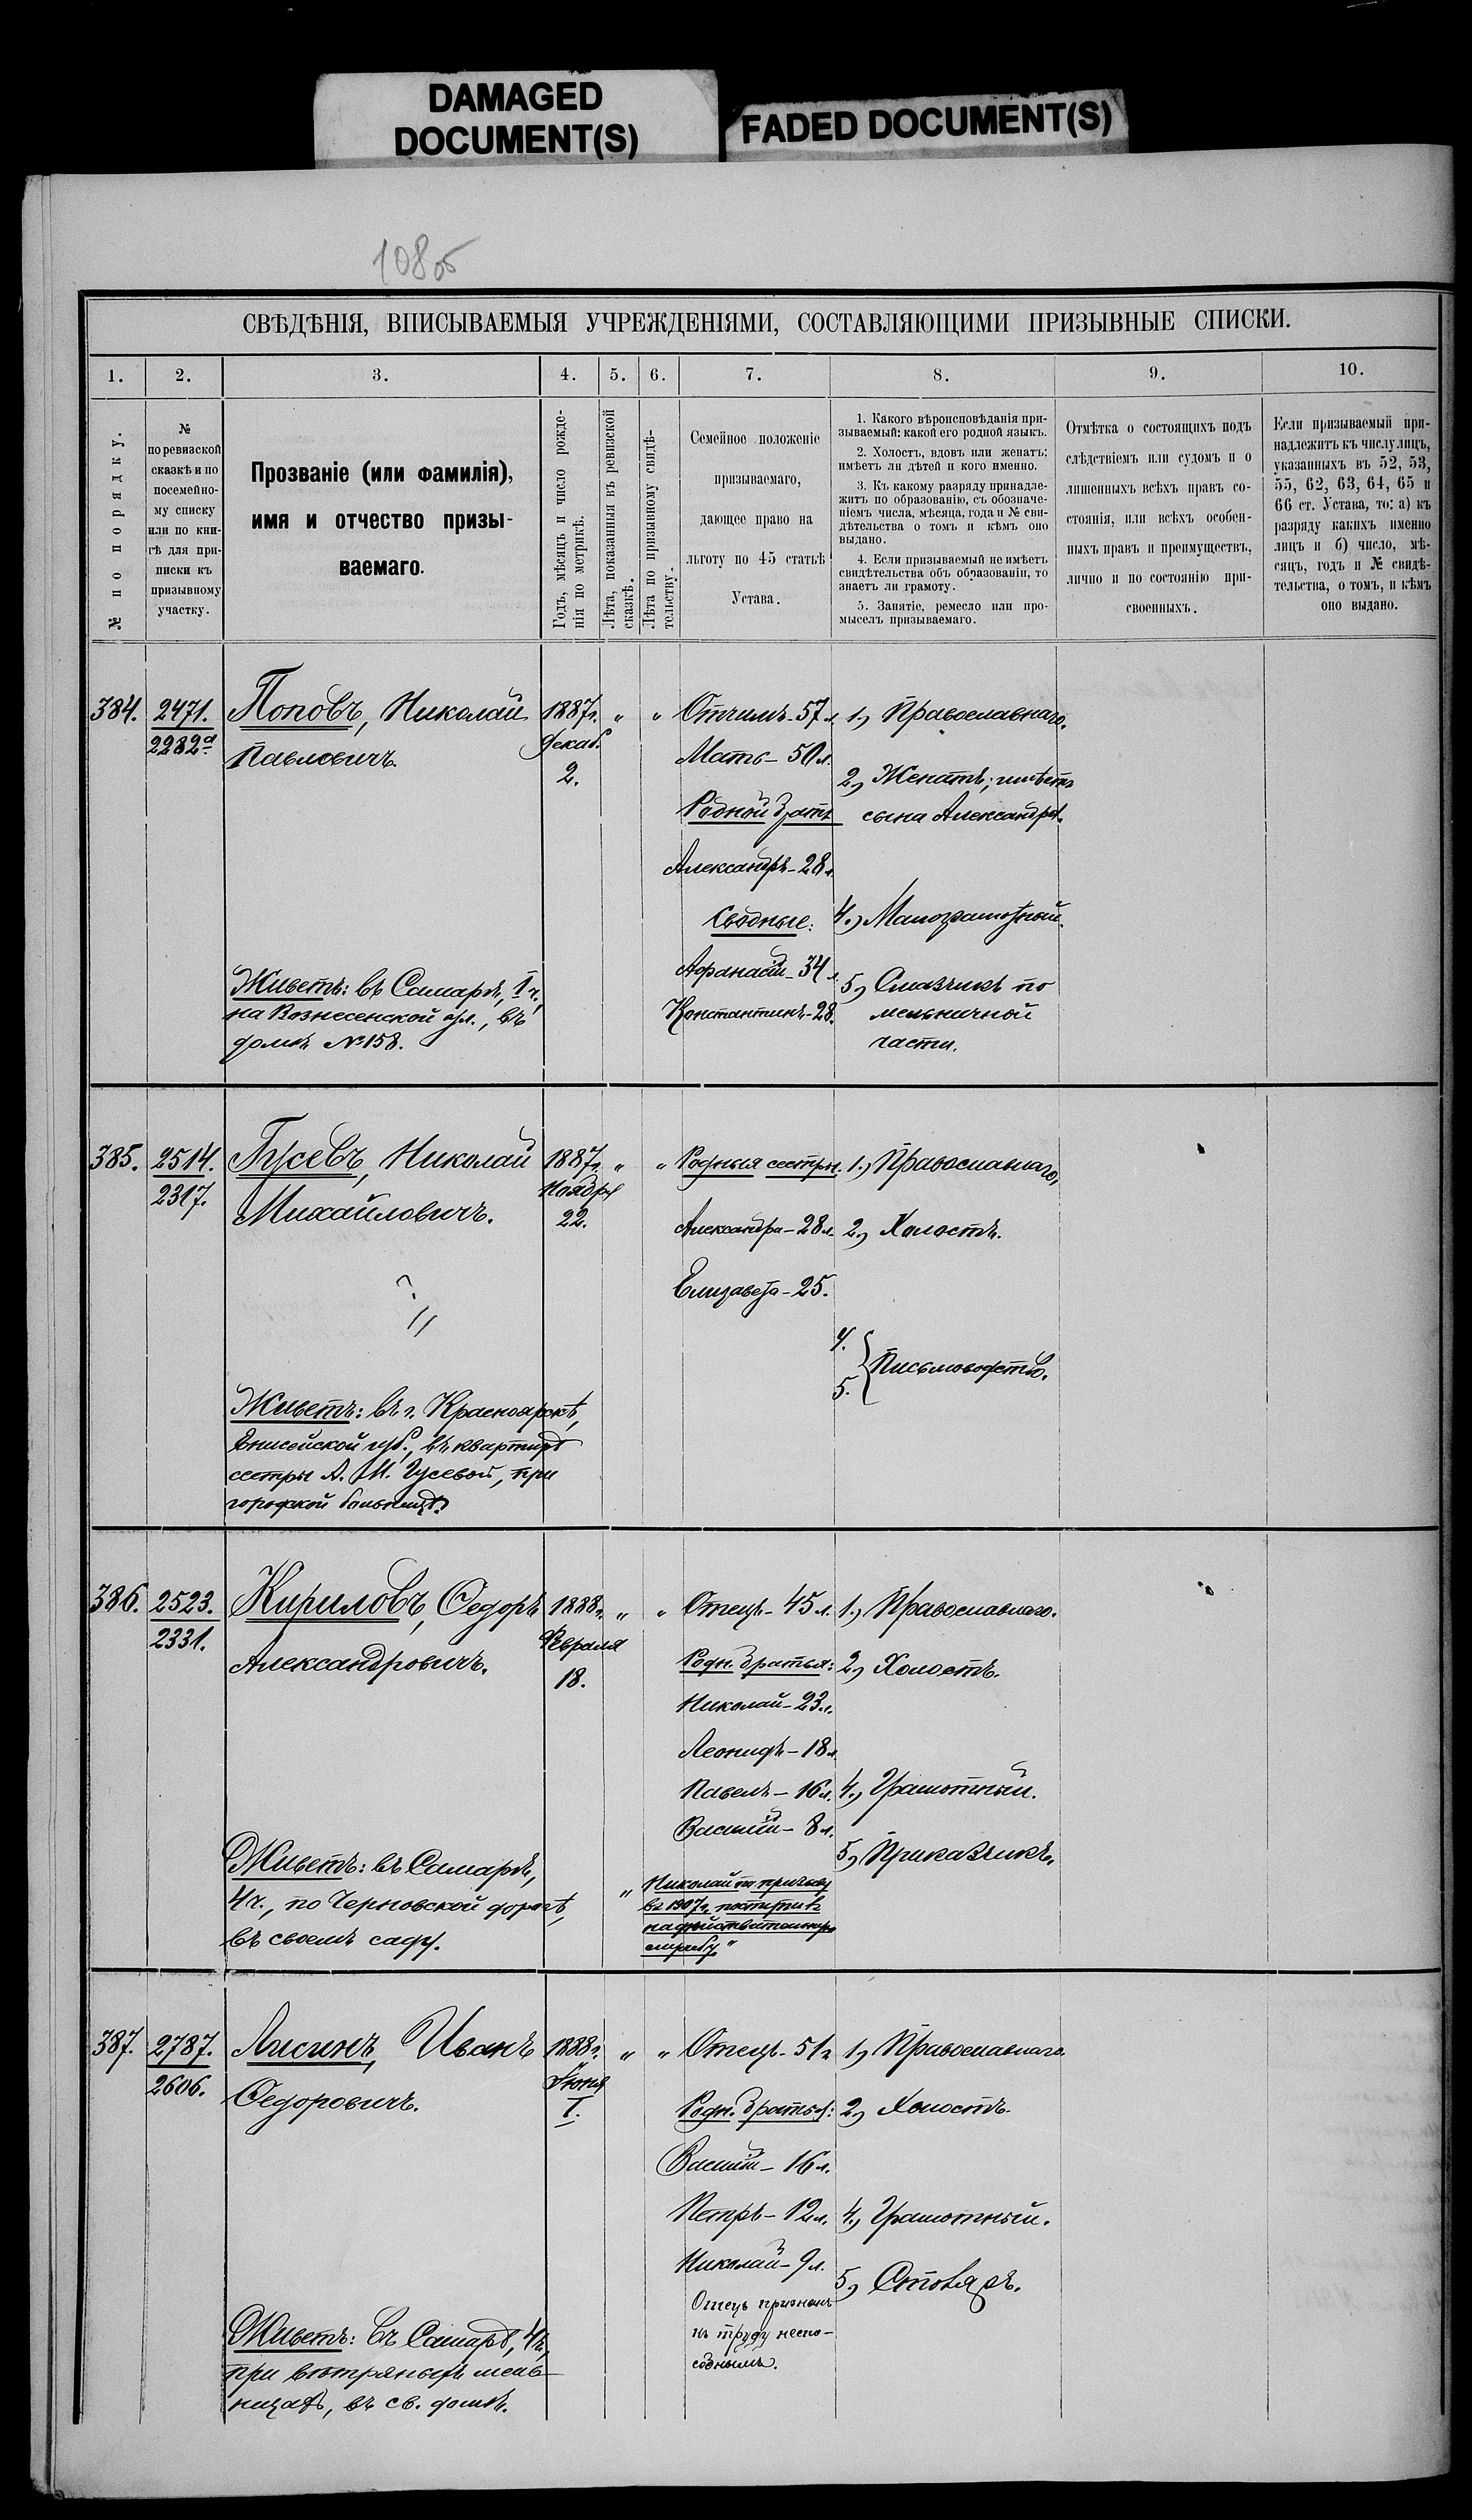 DAMAGED
DOCUMENT(S)
FADED DOCUMENT(S)
108об
СВѢДѢНІЯ, ВПИСЫВАЕМЫЯ УЧРЕЖДЕНІЯМИ, СОСТАВЛЯЮЩИМИ ПРИЗЫВНЫЕ СПИСКИ.
1.
2.
3.
4.
5.
6.
7.
8.
9.
10.
№ по порядку.
№
по ревизской
сказкѣ и по
посемейно-
му списку
или по кни-
гѣ для при-
писки къ
призывному
участку.
Прозваніе (или фамилія),
имя и отчество призы-
ваемаго.
Годъ, мѣсяцъ и число рожде-
нія по метрикѣ.
Лѣта, показанныя въ ревизской
сказкѣ.
Лѣта по призывному свидѣ-
тельству.
Семейное положеніе
призываемаго,
дающее право на
льготу по 45 статьѣ
Устава.
1. Какого вѣроисповѣданія при-
зываемый; какой его родной языкъ.
2. Холостъ, вдовъ или женатъ;
имѣетъ ли дѣтей и кого именно.
3. Къ какому разряду принадле-
житъ по образованію, съ обозначе-
ніемъ числа, мѣсяца, года и № сви-
дѣтельства о томъ и кѣмъ оно
выдано.
4. Если призываемый не имѣетъ
свидѣтельства объ образованіи, то
знаетъ ли грамоту.
5. Занятіе, ремесло или про-
мыселъ призываемаго.
Отмѣтка о состоящихъ подъ
слѣдствіемъ или судомъ и о
лишенныхъ всѣхъ правъ со-
стоянія, или всѣхъ особен-
ныхъ правъ и преимуществъ,
лично и по состоянію при-
своенныхъ.
Если призываемый при-
надлежитъ къ числу лицъ,
указанныхъ въ 52, 53,
55, 62, 63, 64, 65 и
66 ст. Устава, то: а) къ
разряду какихъ именно
лицъ и б) число, мѣ-
сяцъ, годъ и № свидѣ-
тельства, о томъ, и кѣмъ
оно выдано.
384.
2471.
2282а
Поповъ, Николай
Павловичъ.
Живетъ: въ Самарѣ, 1 ч.,
на Вознесенской ул., въ
домѣ № 158.
1887 г.
Декаб.
2.
"
"
Отчимъ - 57 л.
Мать - 50 л.
Родной братъ
Александръ - 28 л.
Сводные:
Афанасій - 34 л.
Константинъ - 28.
1, Православнаго.
2, Женатъ; имѣетъ
сына Александра.
4,) Малограмотный.
5, Смазчикъ по
мельничной
части.
385.
2514.
2317.
Гусевъ, Николай
Михайловичъ.
?
Живетъ: въ г. Красноярскѣ,
Енисейской губ., въ квартирѣ
сестры А. М. Гусевой, при
городской больницѣ.
1887 г.
Ноября
22.
"
"
Родныя сестры.
Александра - 28 л.
Елизавета - 25.
1,) Православнаго,
2, Холостъ.
4.
5.
Письмоводство.
386.
2523.
2331.
Кириловъ, Ѳедоръ
Александровичъ.
Живетъ: въ Самарѣ,
4 ч., по Черновской дорогѣ,
въ своемъ саду.
1888 г.
Февраля
18.
"
"
Отецъ - 45 л.
Родн. братья:
Николай - 23 л.
Леонидъ - 18 л.
Павелъ - 16 л.
Василій - 8 л.
„Николай по призыву
въ 1907 г. поступилъ
на дѣйствительную
службу"
1,) Православнаго.
2, Холостъ.
4,) Грамотный.
5, Приказчикъ.
387.
2787.
2606.
Лисинъ, Иванъ
Ѳедоровичъ.
Живетъ: въ Самарѣ, 4 ч.,
при вѣтряныхъ мель-
ницахъ, въ св. домѣ.
1888 г.
Іюня
1.
"
"
Отецъ - 51 г.
Родн. братья:
Василій - 16 л.
Петръ - 12 л.
Николай - 9 л.
Отецъ признанъ
къ труду неспо-
собнымъ.
1, Православнаго.
2, Холостъ.
4, Грамотный.
5, Столяръ.